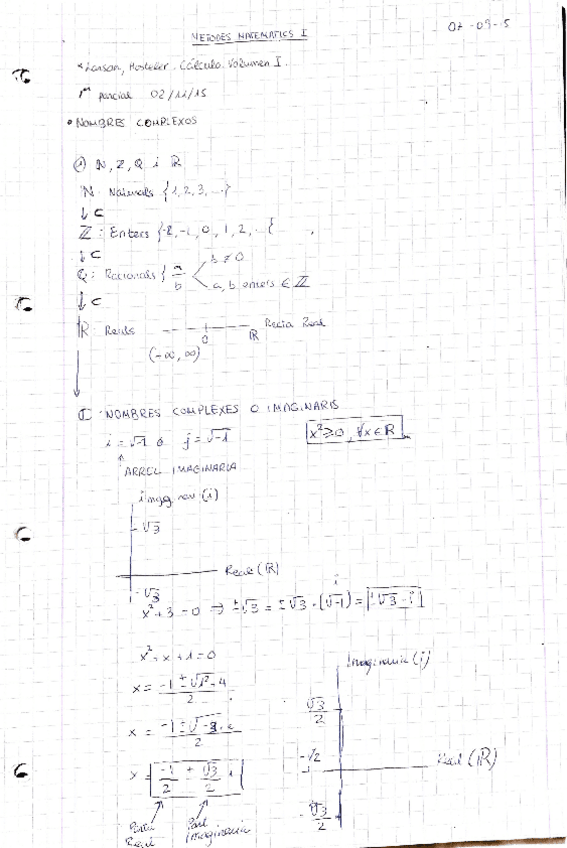 METODES MATEMATICS I
* Larson, Hosteler. Cálculo. Volumen I.
1er parcial 02/11/15
• NOMBRES COMPLEXOS
N, Z, Q i R
N: Naturals {1, 2, 3, ...}
↓ ⊂
Z: Enters {-2, -1, 0, 1, 2, ...{
↓ ⊂
Q: Racionals { a/b < b ≠ 0
a, b enters ∈ Z
↓ ⊂
R: Reals 0 R Recta Real
(-∞, ∞)
C: NOMBRES COMPLEXES O IMAGINARIS
i = √-1 ó j = √-1
x² ≥ 0, ∀x ∈ R
↑
ARREL IMAGINARIA
(i)
√3
Real (R)
-√3
x² + 3 = 0 → ±√-3 = ±√3 · (√-1) = ±√3 · i
i
x² + x + 1 = 0
Imaginaria (i)
√3/2
Real (R)
-√3/2
Part Real
Part Imaginaria